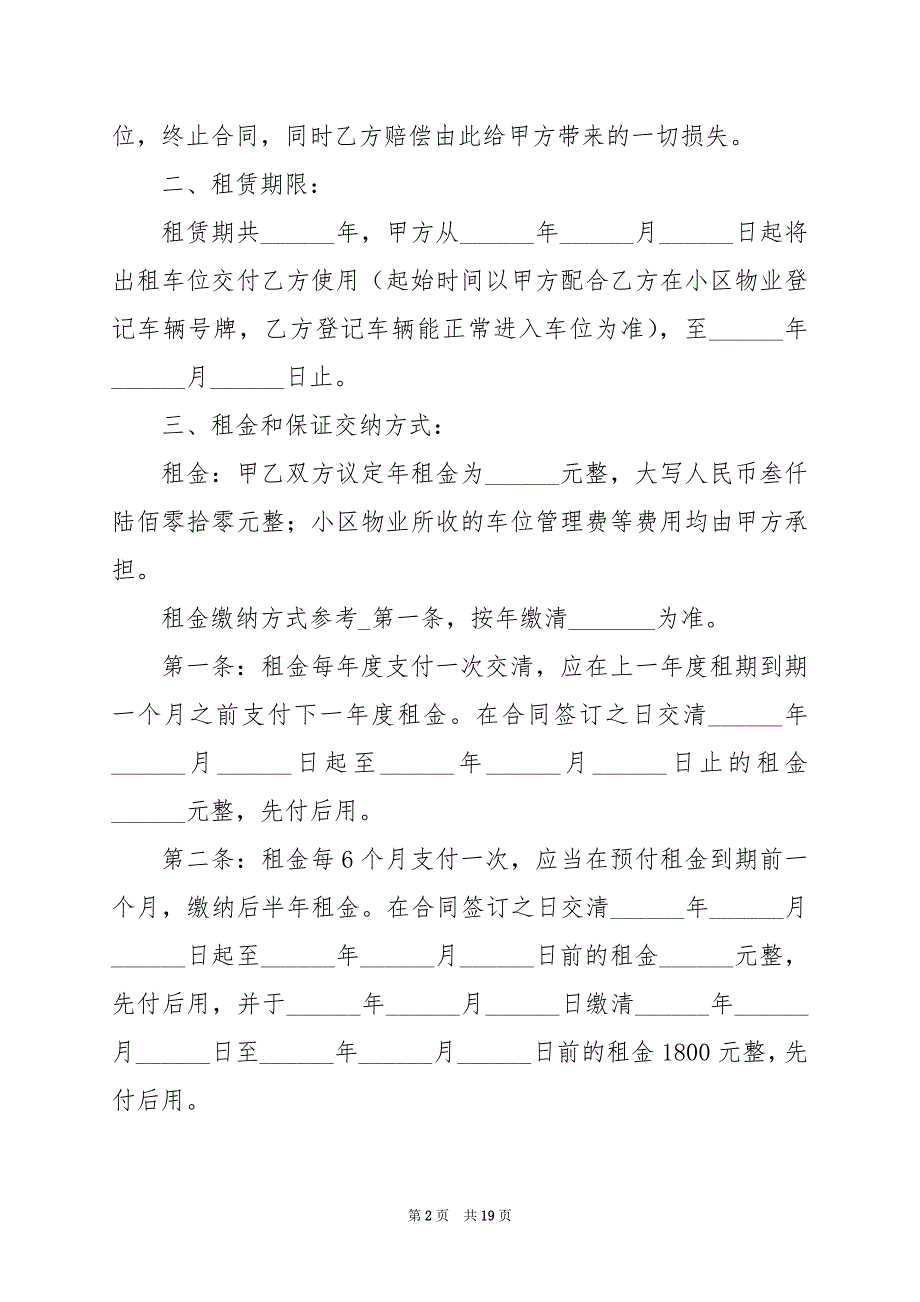 位，终止合同，同时乙方赔偿由此给甲方带来的一切损失。
二、租赁期限：
租赁期共______年，甲方从______年______月______日起将
出租车位交付乙方使用（起始时间以甲方配合乙方在小区物业登
记车辆号牌，乙方登记车辆能正常进入车位为准），至______年
______月______日止。
三、租金和保证交纳方式：
租金：甲乙双方议定年租金为______元整，大写人民币叁仟
陆佰零拾零元整；小区物业所收的车位管理费等费用均由甲方承
担。
租金缴纳方式参考_第一条，按年缴清_______为准。
第一条：租金每年度支付一次交清，应在上一年度租期到期
一个月之前支付下一年度租金。在合同签订之日交清______年
______月______日起至______年______月______日止的租金
______元整，先付后用。
第二条：租金每 6 个月支付一次，应当在预付租金到期前一
个月，缴纳后半年租金。在合同签订之日交清______年______月
______日起至______年______月______日前的租金______元整，
先付后用，并于______年______月______日缴清______年______
月______日至______年______月______日前的租金 1800 元整，先
付后用。
第 2 页 共 19 页